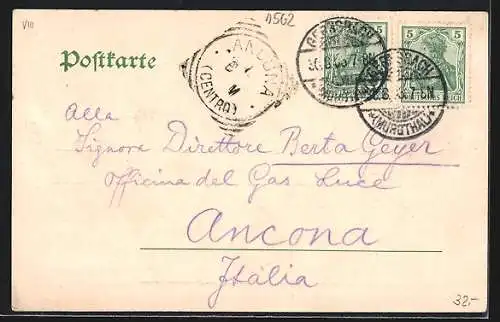 VIII
1562
Postkarte
ANCONA
(CENTRO)
GERNSBACH
(MURGTHAL)
5 5
5 5
GERNSBACH
(MURGTHAL)
REICH
Alla
Signora Direttore Berta Geyer
Officina del Gas Luce
Ancona
Italia
32.-